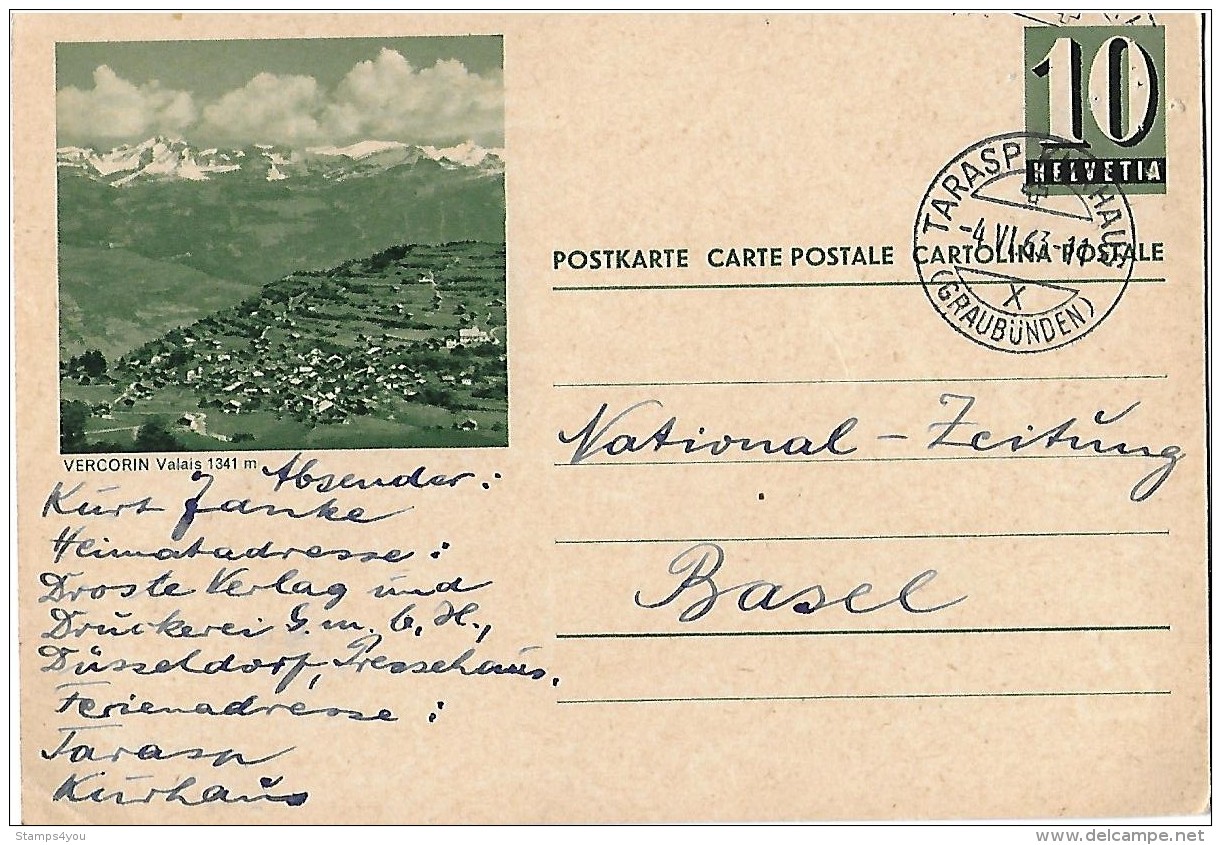 10
HELVETIA
TARASP KURHAUS
-4.VI.63-11
X
(GRAUBÜNDEN)
POSTKARTE CARTE POSTALE CARTOLINA POSTALE
VERCORIN Valais 1341 m
National-Zeitung
Basel
Absender:
Kurt Janke
Heimatadresse:
Droste Verlag und
Druckerei G.m.b.H.,
Düsseldorf, Pressehaus.
Ferienadresse:
Tarasp
Kurhaus
Stamps4you
delcampe.net